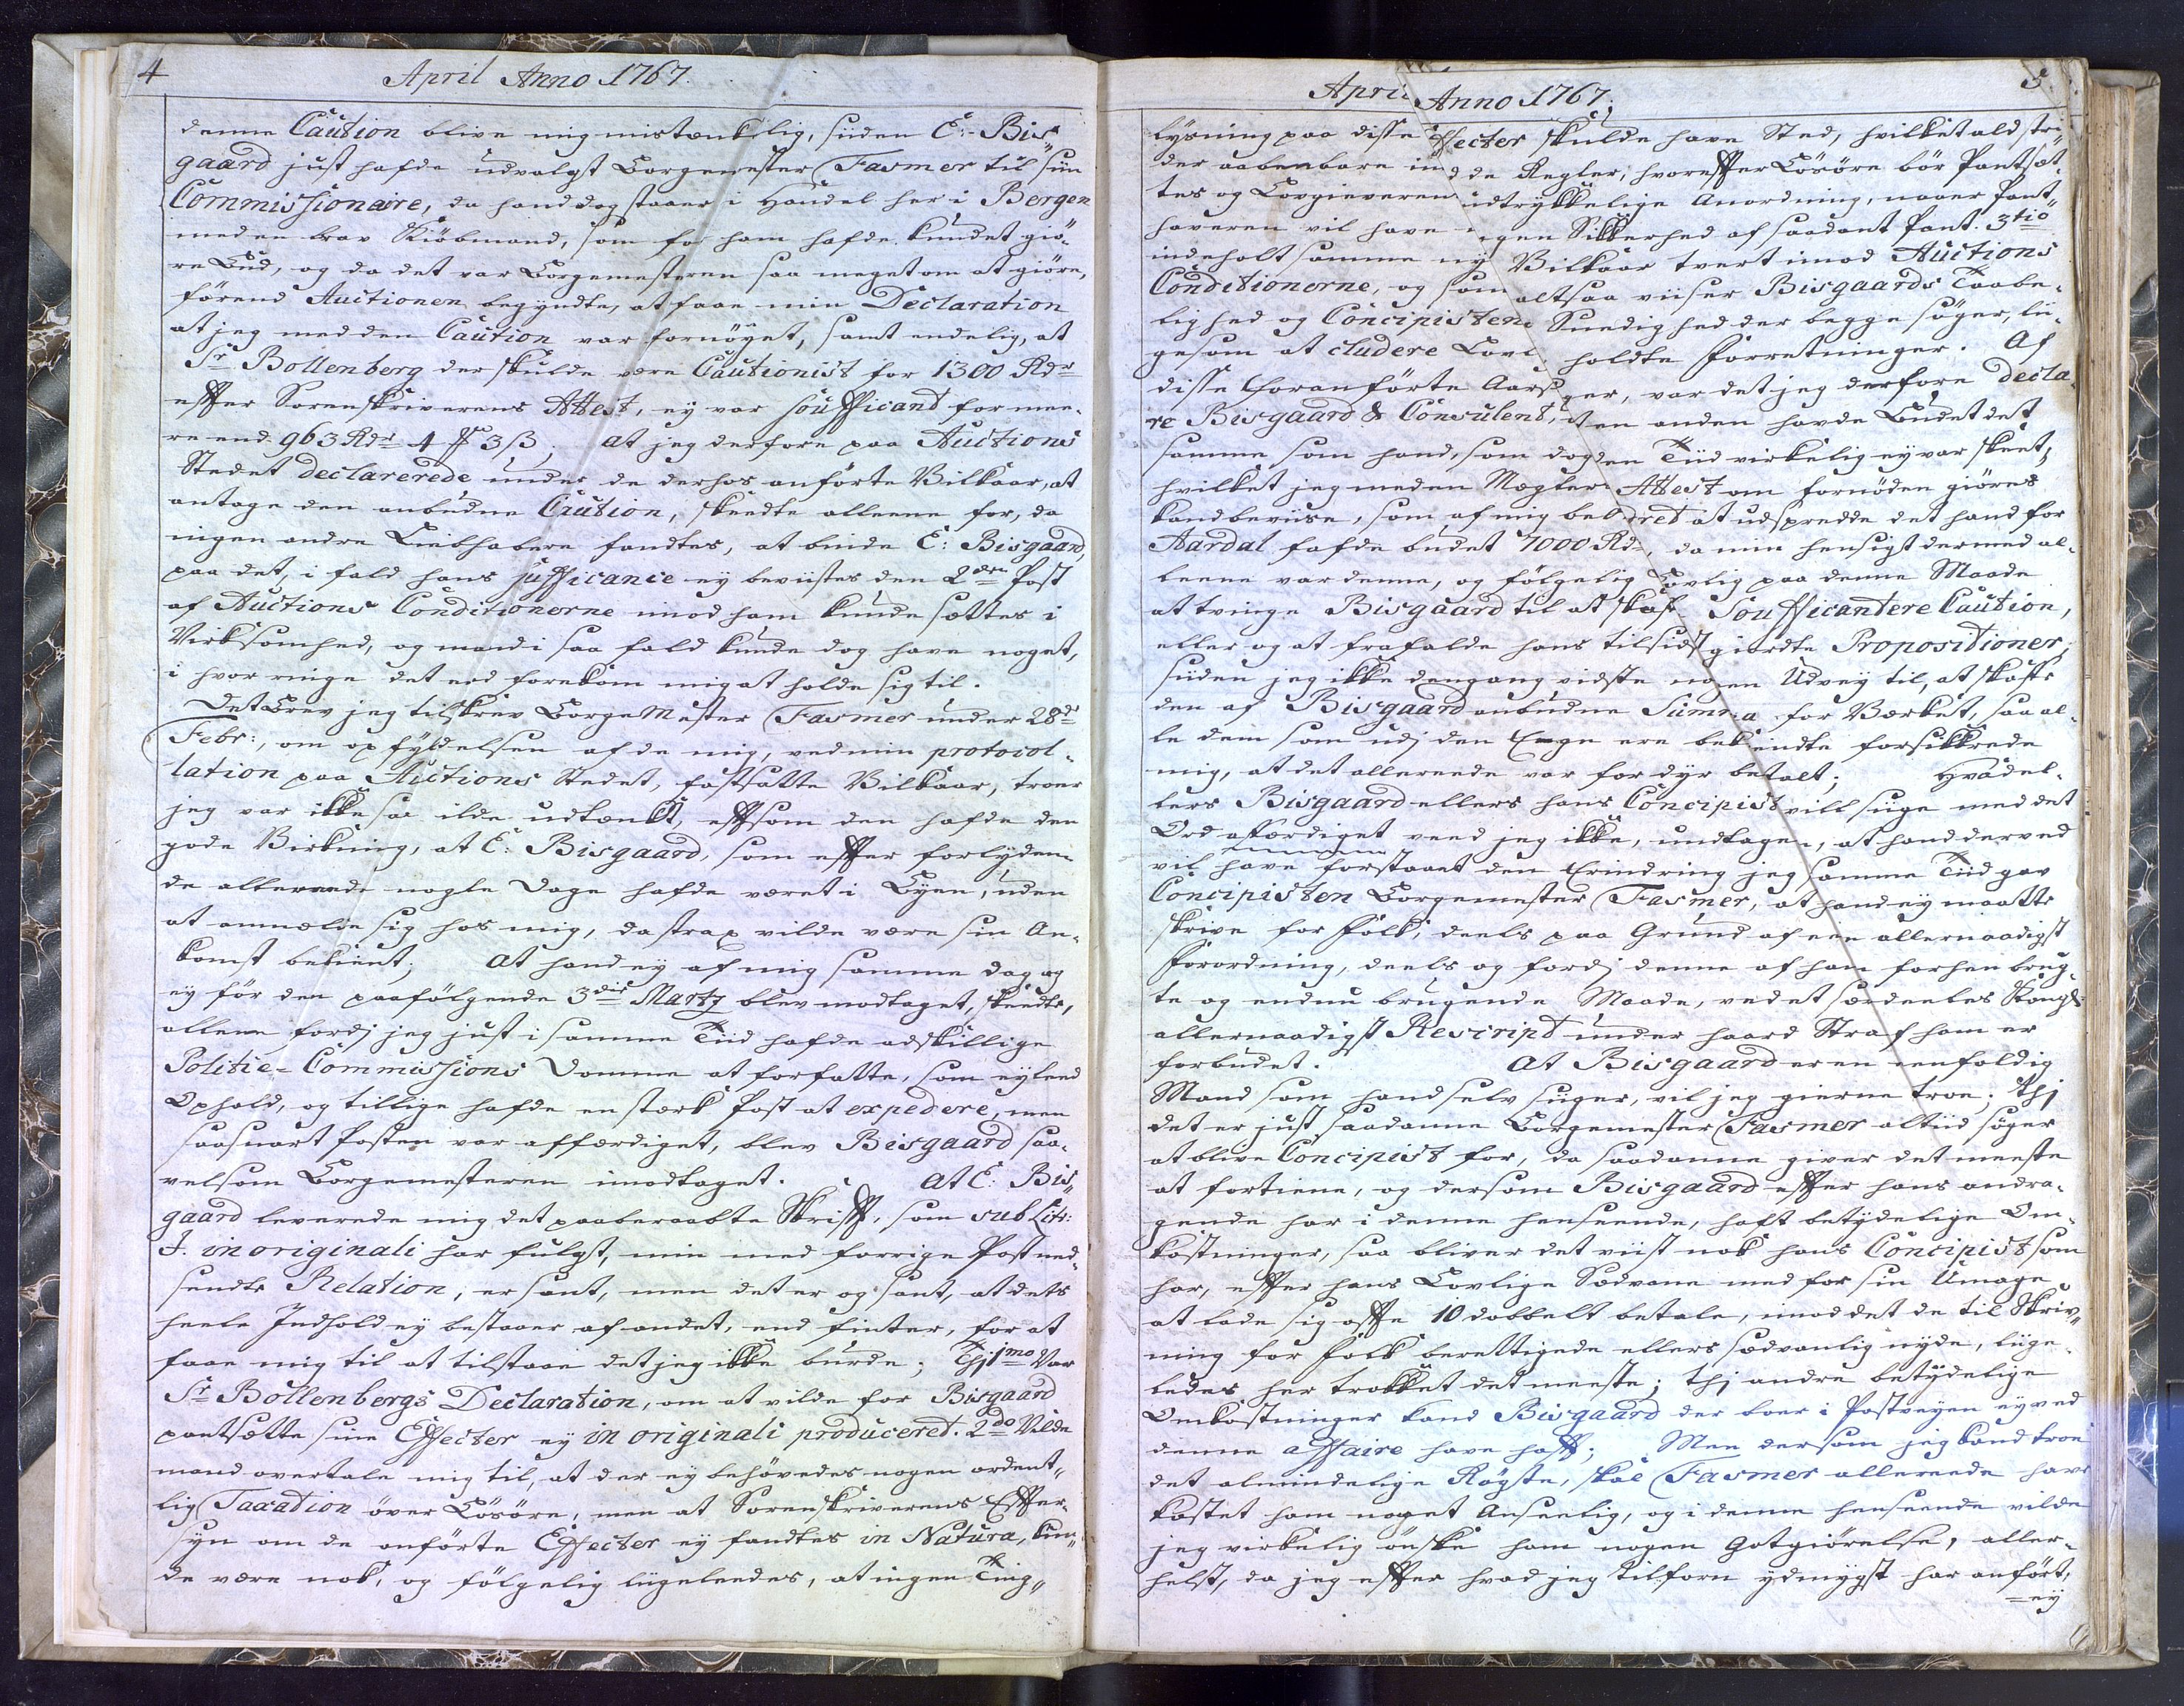 4
April Anno 1767.
denne Caution blive mig mistænkelig, siiden E: Bis„
gaard just hafde udvalgt Borgemester Fasmer til siin
Commissionaire, da hand dog staaer i Handel her i Bergen
med en brav Kiøbmand, som for ham hafde kundet giø¬
re Bud, og da det var Borgemesteren saa meget om at giøre,
førend Auctionen begyndte, at faae min Declaration
at jeg med den Caution var fornöyet, samt endelig, at
Sr Bollenberg der skulde være Cautionist for 1300 Rdr
efter Sorenskriverens Attest, ey var soufficand for mee¬
re end 963 Rdr 4 ₰ 3 ß; At jeg derfore paa Auctions
Stedet declarerede under de derhos anførte Vilkaar, at
antage den anbudne Caution, skeedte alleene for, da
ingen andre Liebhabere fandtes, at binde E: Bisgaard,
paa det, i fald hans sufficance ey beviistes den 2den Post
af Auctions Conditionerne imod ham kunde sættes i
Virksomhed, og mand i saa fald kunde dog have noget,
i hvor ringe det end forekom mig at holde sig til.
Det Brev jeg tilskrev BorgeMester Fasmer under 28de
Febr:, om opfyldelsen af de mig, ved min protocol¬
lation paa Auctions Stedet, fastsatte Vilkaar, troer
jeg var ikke saa ilde udtænkt, eftersom den hafde den
gode Virkning, at E: Bisgaard, som efter forlyden¬
de allereede nogle Dage hafde været i Byen, uden
at anmelde sig hos mig, da strax vilde være sin An¬
komst bekient; At hand ey af mig samme dag og
ey før den paafølgende 3die Martz blev modtaget, skeedte,
alleene fordj jeg just i samme Tiid hafde adskillige
Politie-Commissions Domme at forfatte, som eyleed
Ophold, og tillige hafde en stærk Post at expedere, men
saasnart Posten var affærdiget, blev Bisgaard saa¬
velsom Borgemesteren imodtaget. At E: Bis„
gaard leverede mig det paaberaabte Skrift, som sub Litr:
J. in originali har fulgt, min med forrige Post ned¬
sendte Relation, er sant, men det er og sant, at dets
heele Indhold ey bestaaer af andet, end finter, for at
faae mig til at tilstaae det jeg ikke burde; Thj 1mo Var
Sr Bollenbergs Declaration, om at vilde for Bisgaard
pantsætte sine Effecter ey in originali produceret. 2do Vilde
mand overtale mig til, at der ey behövedes nogen ordent„
lig Taxation över Løsøre, men at Sorenskriverens Efter¬
syn om de anførte Effecter ey fandtes in Natura, kun„
de være nok, og følgelig liigeleedes, at ingen Ting„
5.
April Anno 1767.
lysning paa disse Effecter skulde have Sted, hvilket ald stri„
der aabenbare imod de Regler, hvorefter Løsøre bør Pantsæt¬
tes og Lovgieveren udtrykkelige Anordning, naaer Pant„
haveren vil have nogen Sikkerhed af saadant Pant. 3tio
indeholt samme nye Vilkaar tvert imod Auctions
Conditionerne, og som altsaa viiser Bisgaards Taabe¬
lighed og Concipistens Snedighed der begge søger, lii¬
gesom at eludere Lovl. holdte Forretninger. Af
disse foranførte Aarsager, var det jeg derfore decla¬
re Bisgaard & Consulent, at en anden havde Budet det
samme som hand, som dog den Tiid virkelig ey var skeet,
hvilket jeg med en Mæglers Attest om fornöden giöres
kand beviise, som af mig beordret at udspredde det hand for
Aardal hafde budet 7000 Rdr, da min hensigt dermed al¬
leene var denne, og følgelig Lovlig paa denne Maade
at tvinge Bisgaard til at skaffe Soufficantere Caution,
eller og at frafalde hans tilsidst giordte Propositioner,
siiden jeg ikke dengang vidste nogen Udvey til, at skaffe
den af Bisgaard anbudne Summa for Værket, saa al¬
le dem som udj den Egn ere bekiendte forsikkrede
mig, at det allereede var for dyr betalt; Hvad el¬
lers Bisgaard ellers hans Concipist vill siige med det
Ord affærdiget veed jeg ikke, undtagen, at hand derved
vil have forstaaet den Erindring jeg samme Tiid gav
Concipisten Borgemester Fasmer, at hand ey maatte
skrive for Folk, deels paa Grund af een allernaadigst
Forordning, deels og fordj denne af ham forhen brug¬
te og endnu brugende Maade, ved et særdeeles Kongl:
allernaadigst Rescript under haard Straf ham er
forbudet. At Bisgaard er en eenfoldig
Mand som hand selv siiger, vil jeg gierne troe; Thj
det er just saadanne Borgemester Fasmer altiid søger
at blive Concipist for, da saadanne giver det meeste
at fortiene, og dersom Bisgaard efter hans andra¬
gende har i denne henseende, haft betydelige Om¬
kostninger, saa bliver det viist nok hans Concipist som
har, efter hans Lovlige Sædvane med for sin Umage
at lade sig ofte 10 dobbelt betale, imod det de til Skriv„
ning for Folk berettigede ellers sædvanlig nyde, liige¬
ledes her trækket det meeste; thj andre betydelige
Omkostninger kand Bisgaard der boer i Postveyen ey ved
denne affaire have haft; Men dersom jeg kand troe
det almindelige Rögte, skal Fasmer allereede have
kostet ham noget Anseelig, og i denne henseende vilde
jeg virkelig önske ham nogen Gotgiörelse, aller¬
helst, da jeg efter hvad jeg tilforn ydmygst har anført,
=ey